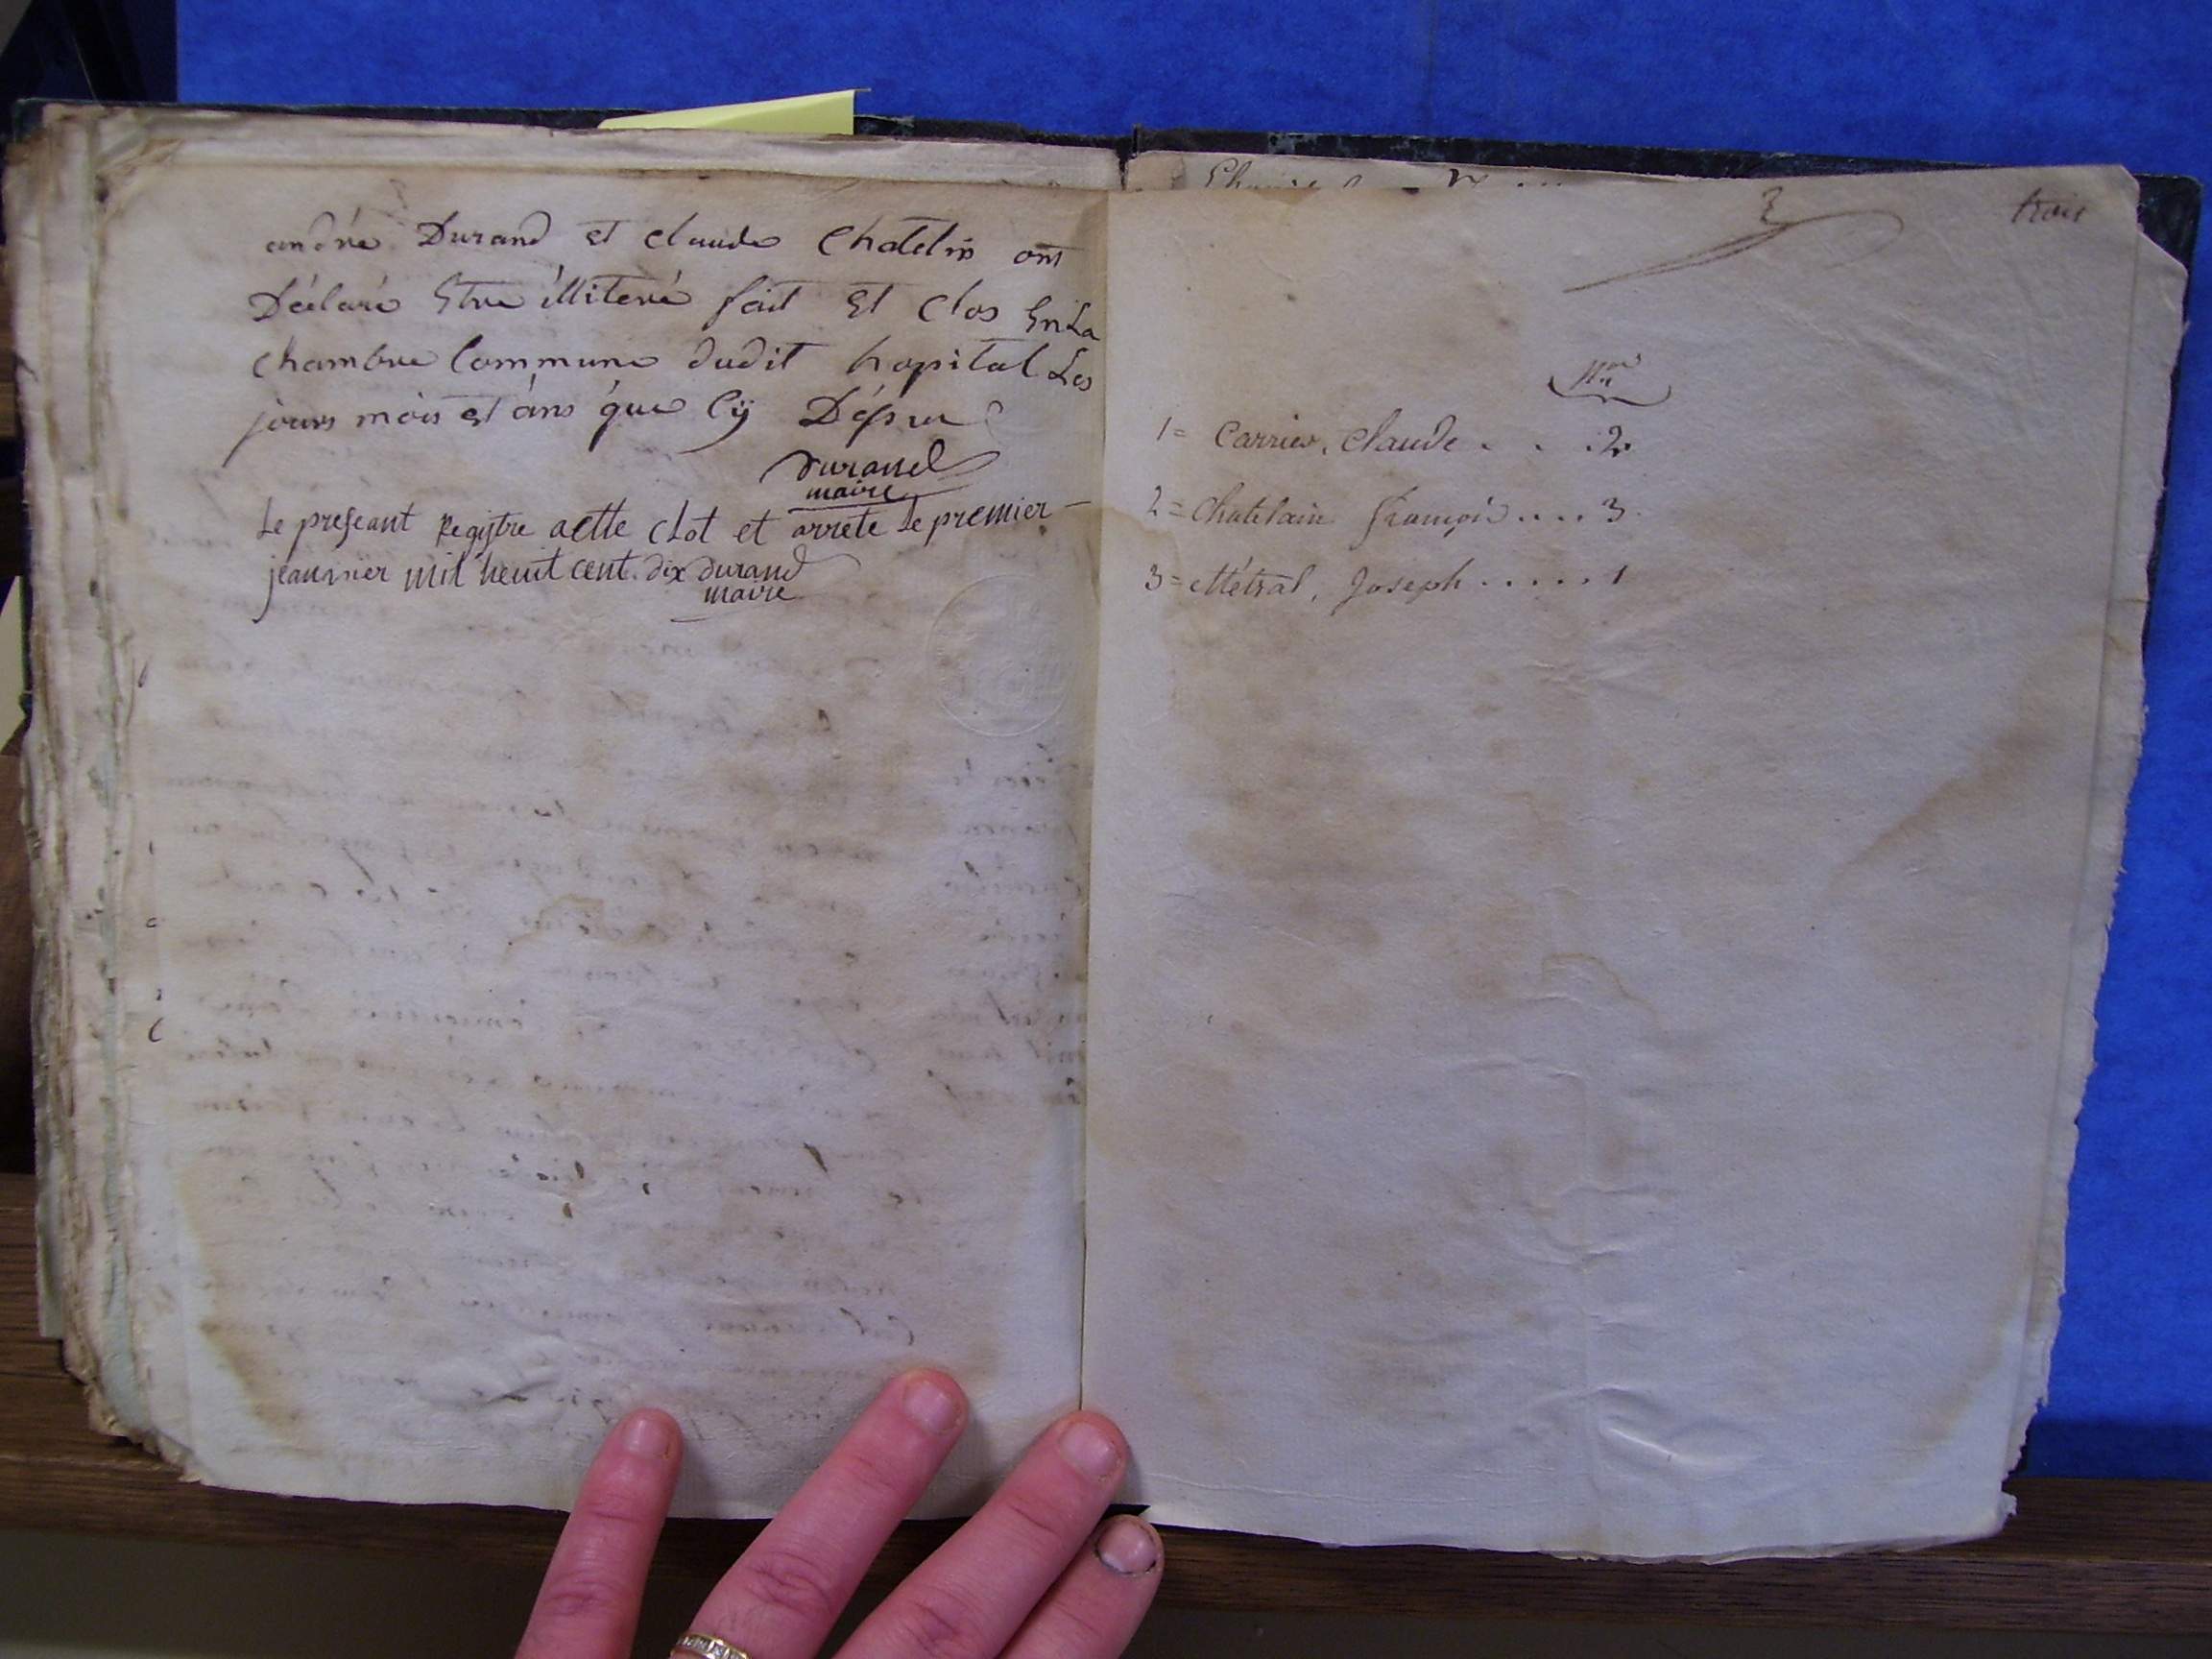 andré Durand et claude Chatelin ont
Déclaré Etre illiteré fait et clos En La
chambre Commune dudit hopital Les
jours mois et áns que Cÿ Désu
Durand
maire
Le preseant Registre aette clot et arrete le premier
jeanvier mil heuit cent dix durand
maire
3 trois
Nos
1= Carrier, Claude . . . 2
2= Chatelain françois .... 3.
3= Métral, Joseph ..... 1